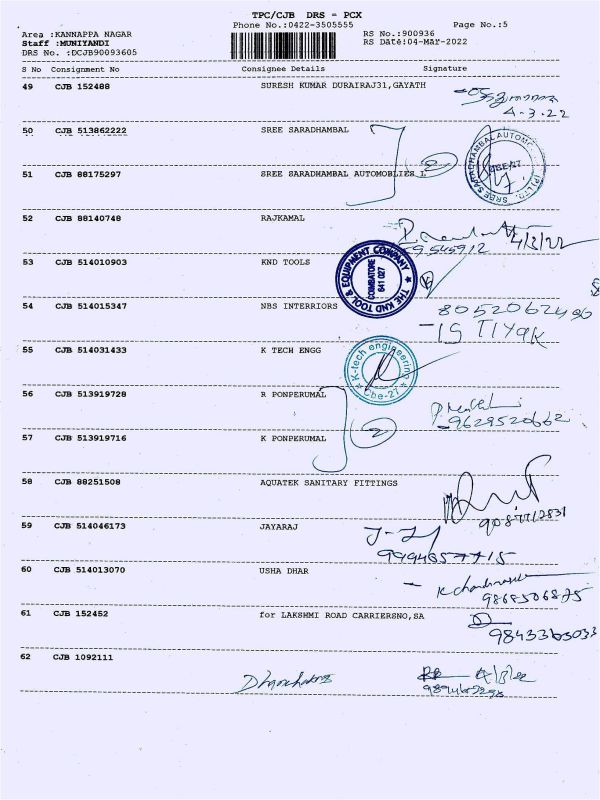 TPC/CJB DRS - PCX
Phone No.:0422-3505555 Page No.:5
Area :KANNAPPA NAGAR RS No.:900936
Staff :MUNIYANDI RS Date:04-Mar-2022
DRS No. :DCJB90093605
S No Consignment No Consignee Details Signature
49 CJB 152488 SURESH KUMAR DURAIRAJ31,GAYATH
4-3.22
50 CJB 513862222 SREE SARADHAMBAL
SREE SARADHAMBAL AUTOMO
51 CJB 88175297 SREE SARADHAMBAL AUTOMOBLIES L
2
52 CJB 88140748 RAJKAMAL
4/3/22
53 CJB 514010903 KND TOOLS
THE KND TOOL & EQUIPMENT COMPANY
COIMBATORE
641 027
54 CJB 514015347 NBS INTERRIORS
8052062496
ISTIYAK
55 CJB 514031433 K TECH ENGG
K-tech engineering
Cbe-27
56 CJB 513919728 R PONPERUMAL
9629520662
57 CJB 513919716 K PONPERUMAL
2
58 CJB 88251508 AQUATEK SANITARY FITTINGS
59 CJB 514046173 JAYARAJ
60 CJB 514013070 USHA DHAR
61 CJB 152452 for LAKSHMI ROAD CARRIERSNO,SA
62 CJB 1092111